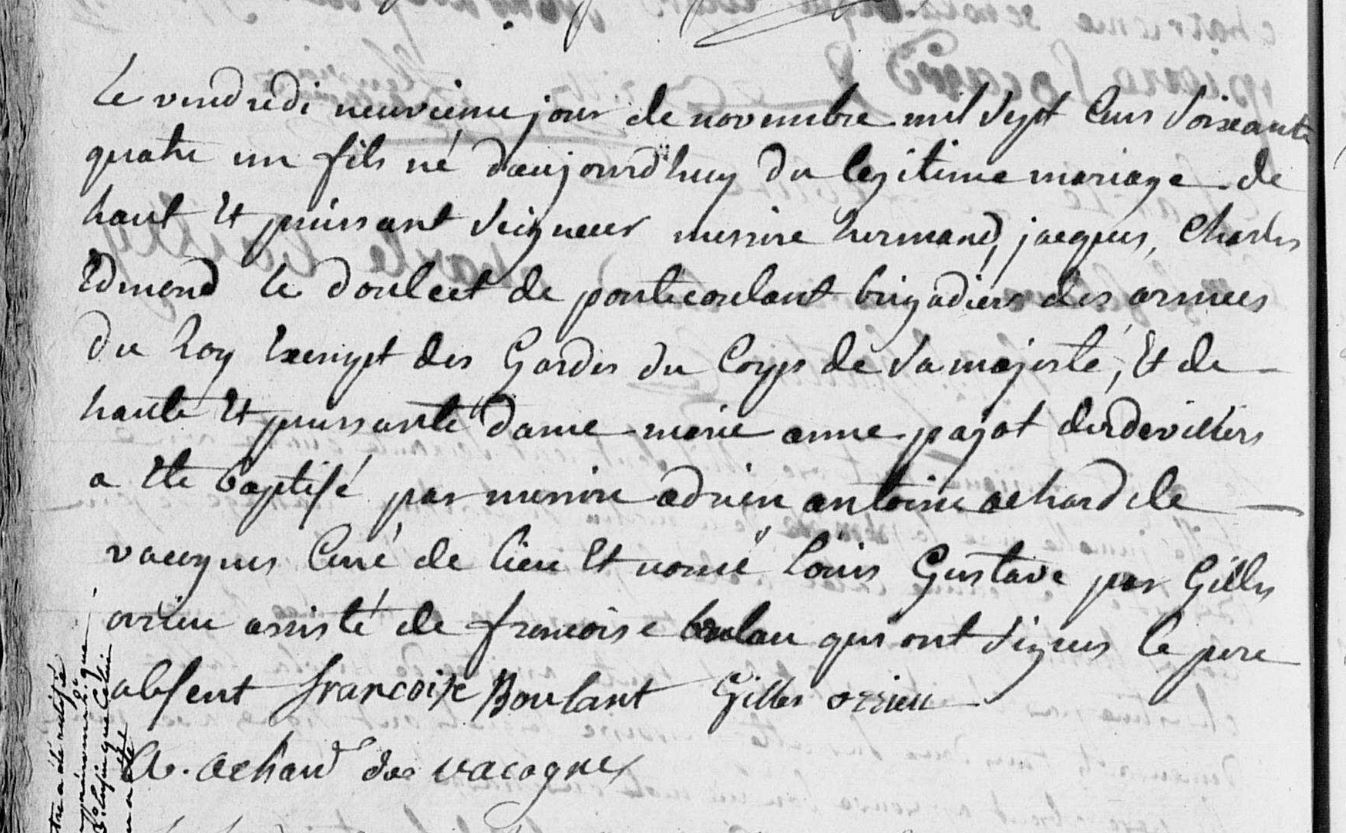 Le vendredi neuvieme jour de novembre mil sept Cens soixante
quatre un fils né d'aujourd'huy du legitime mariage de
haut Et puissant seigneur messire hermand, jacques, Charles
Edmond le doulcet de pontecoulant brigadier des armees
du Roy Exempt des Gardes du Corps de sa majesté, Et de
haute Et puissante dame marie anne pajot
a Ete Baptisé par messire adrien antoine achard de
vacognes Curé de lieu Et nomé Louis Gustave par Gilles
orrieu assisté de francoise qui ont signes le pere
absent francoise Boulant Gilles orrieu
A. achard des vacognes